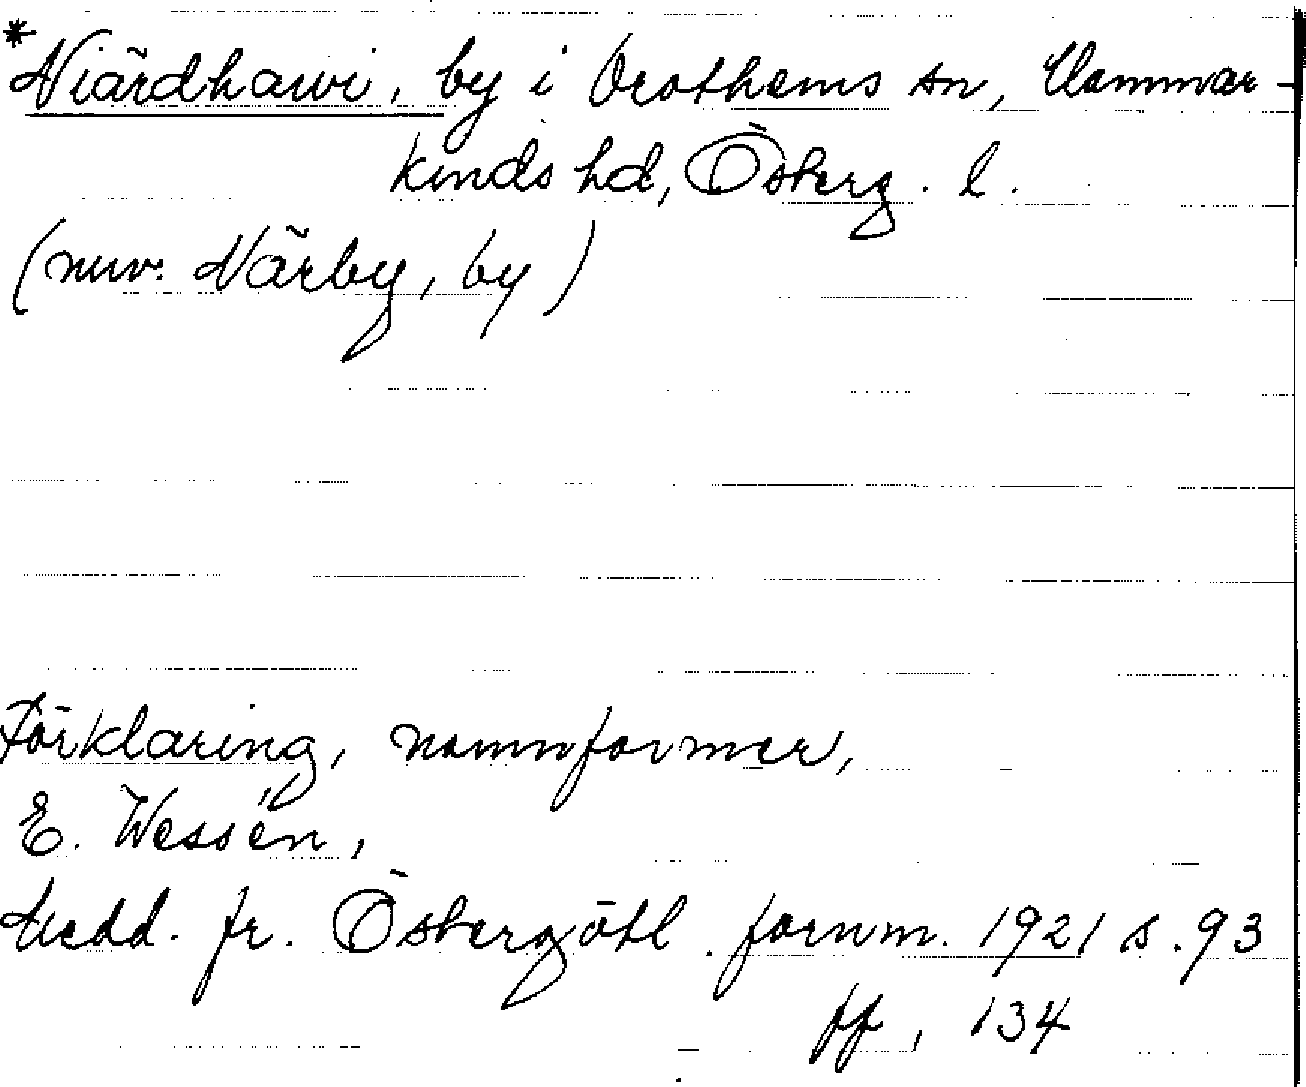 *Niärdhawi, by i Drothems sn, Hammar-
kinds hd, Österg. l.
(nuv. Närby, by)
Förklaring, namnformer,
E. Wessén,
Medd. fr. Östergötl. fornm. 1921 s. 93
ff, 134